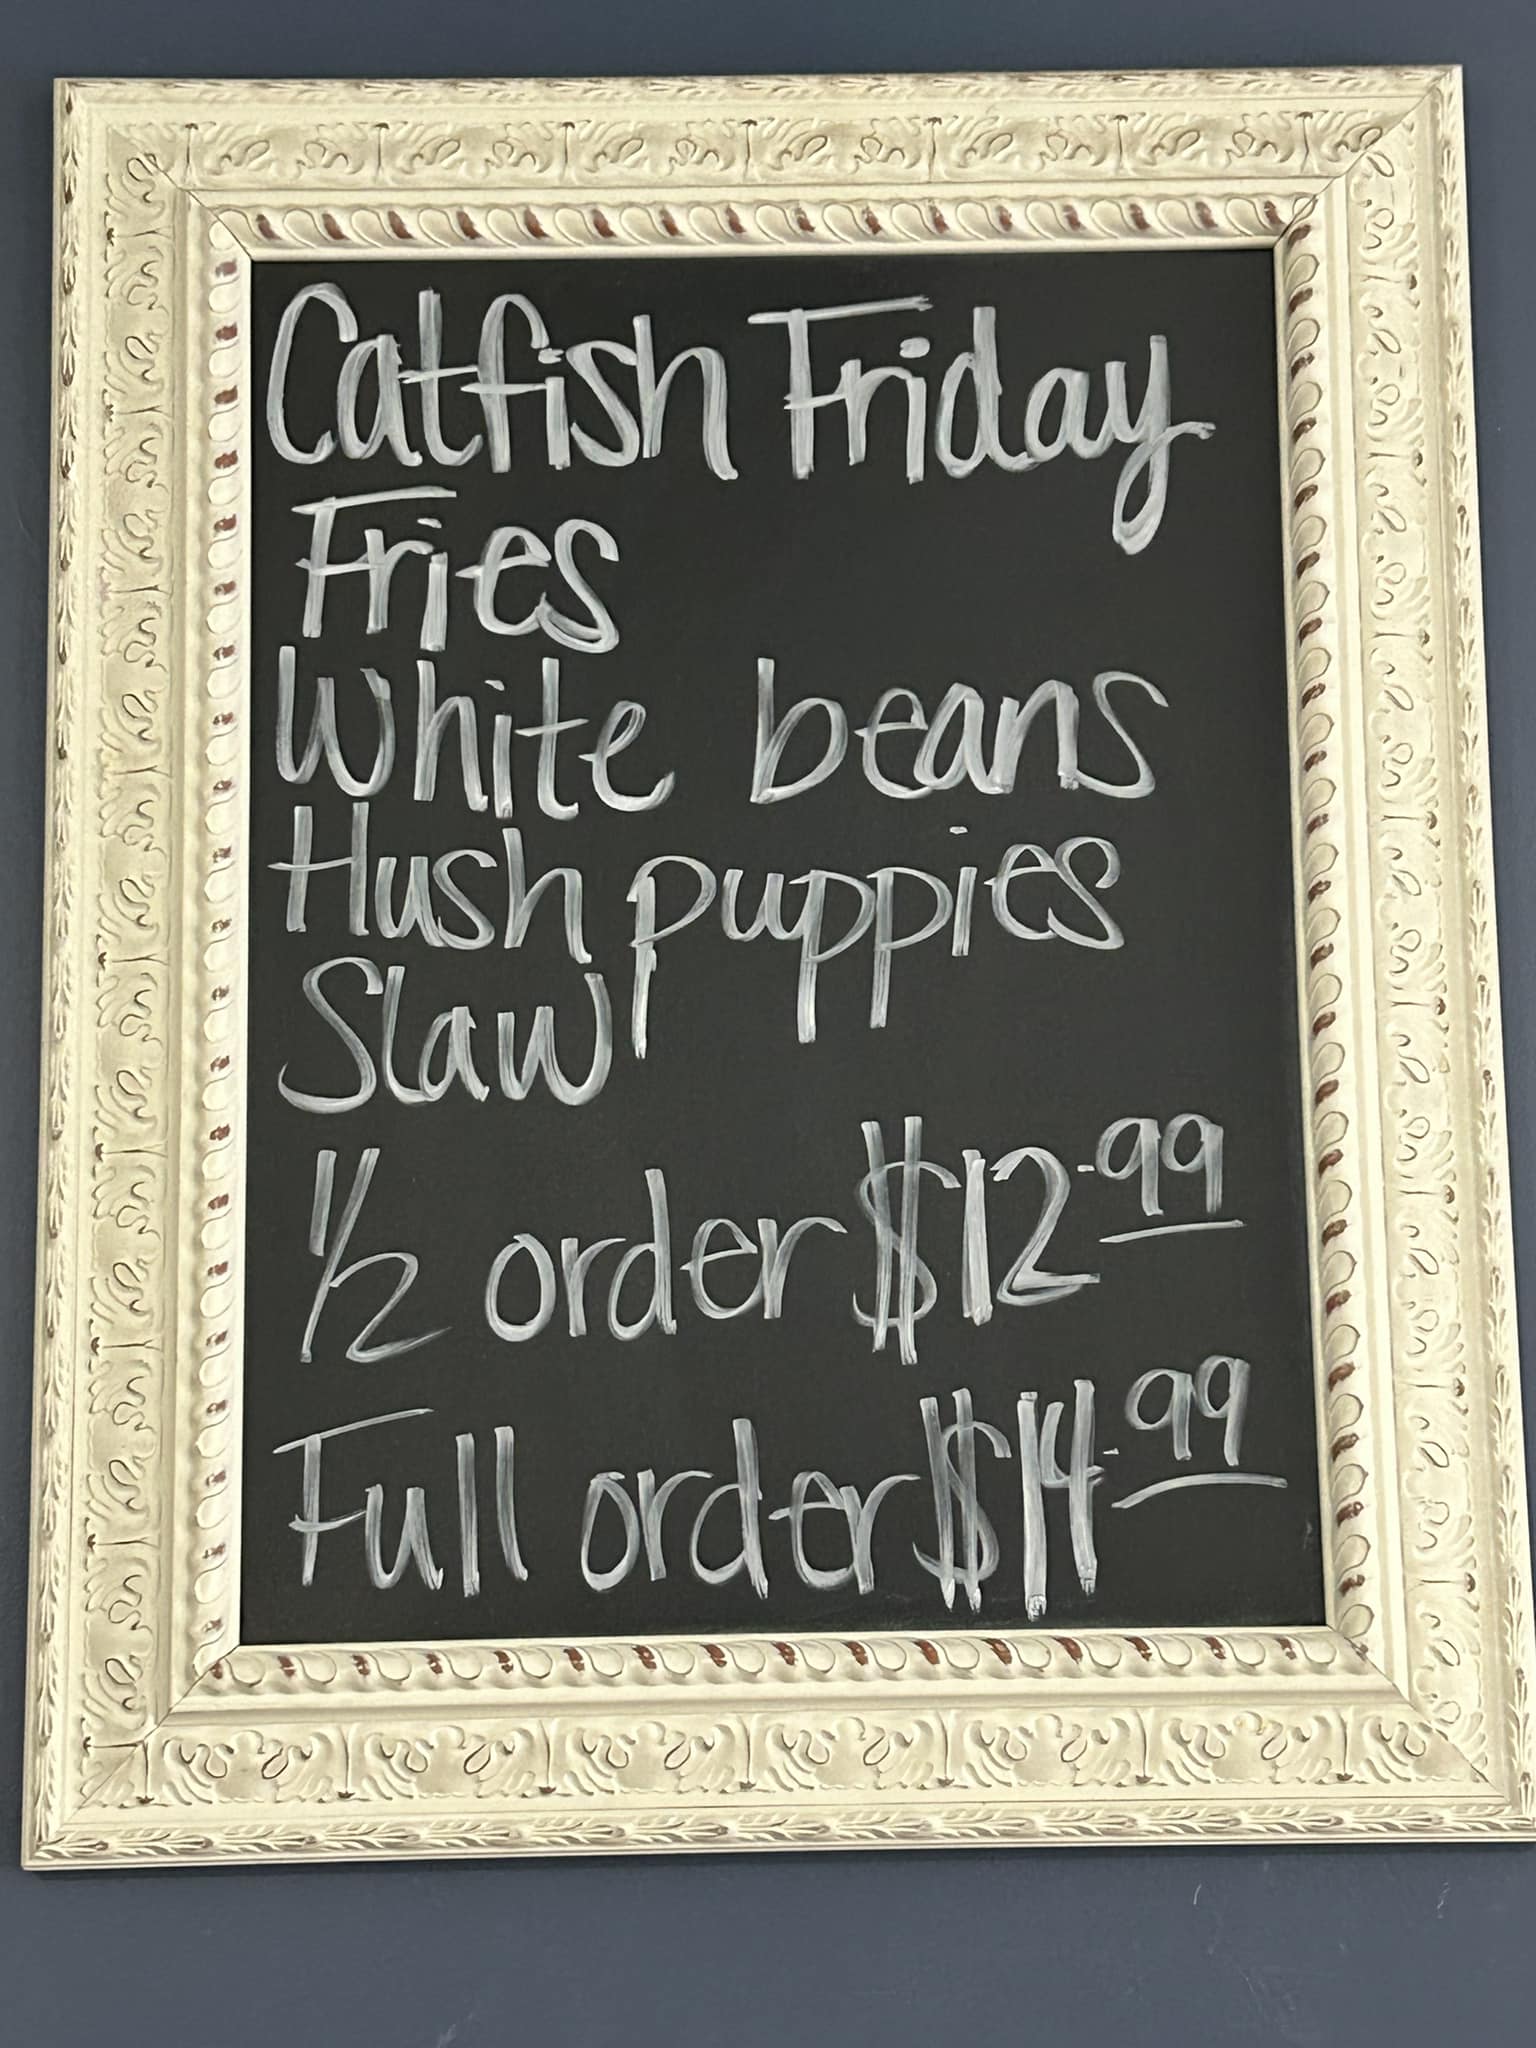 Catfish Friday
Fries
White beans
Hush puppies
Slaw
1/2 order $12.99
Full order $14.99